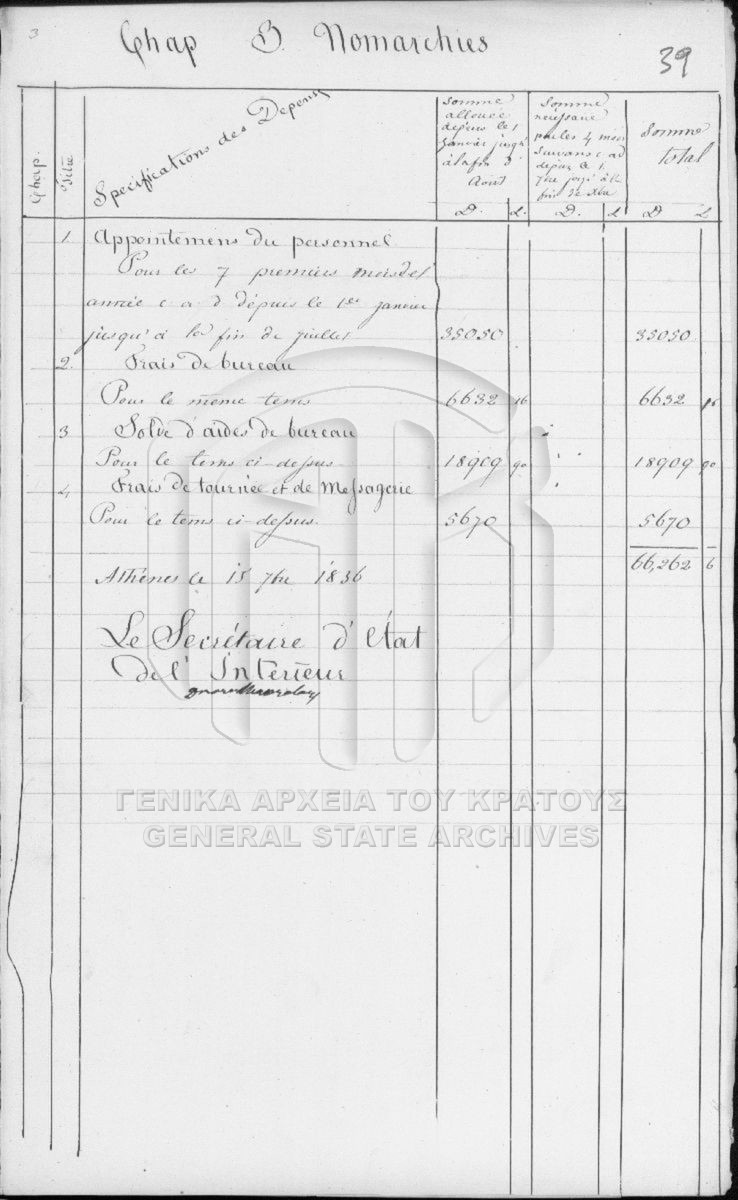 3
Chap B. Nomarchies
39
Chap.
Titre
Spécifications des Depens
Somme
allouée
depuis le 1
Janvier jusqu'
à la fin d'
Aout
Somme
necessaire
pour les 4 mois
suivans c a d
depuis le 1.
7bre jusq' à la
fin de Xbre
Somme
total
D. L. D. L D L
1. Appointemens du personnel
Pour les 7 premiers mois de l'
année c a d dépuis le 1er janvier
jusqu'à la fin de juillet 35050 35050
2. Frais de bureau
Pour le même tems 6632 16 6632 16
3 Solde d'aides de bureau
Pour le tems ci-dessus 18909 90 18909 90
4 Frais de tournée et de Messagerie
Pour le tems ci-dessus. 5670 5670
66,262 6
Athènes le 15 7bre 1836
Le Secrétaire d'Etat
de l'Interieur
ΓΕΝΙΚΑ ΑΡΧΕΙΑ ΤΟΥ ΚΡΑΤΟΥΣ
GENERAL STATE ARCHIVES